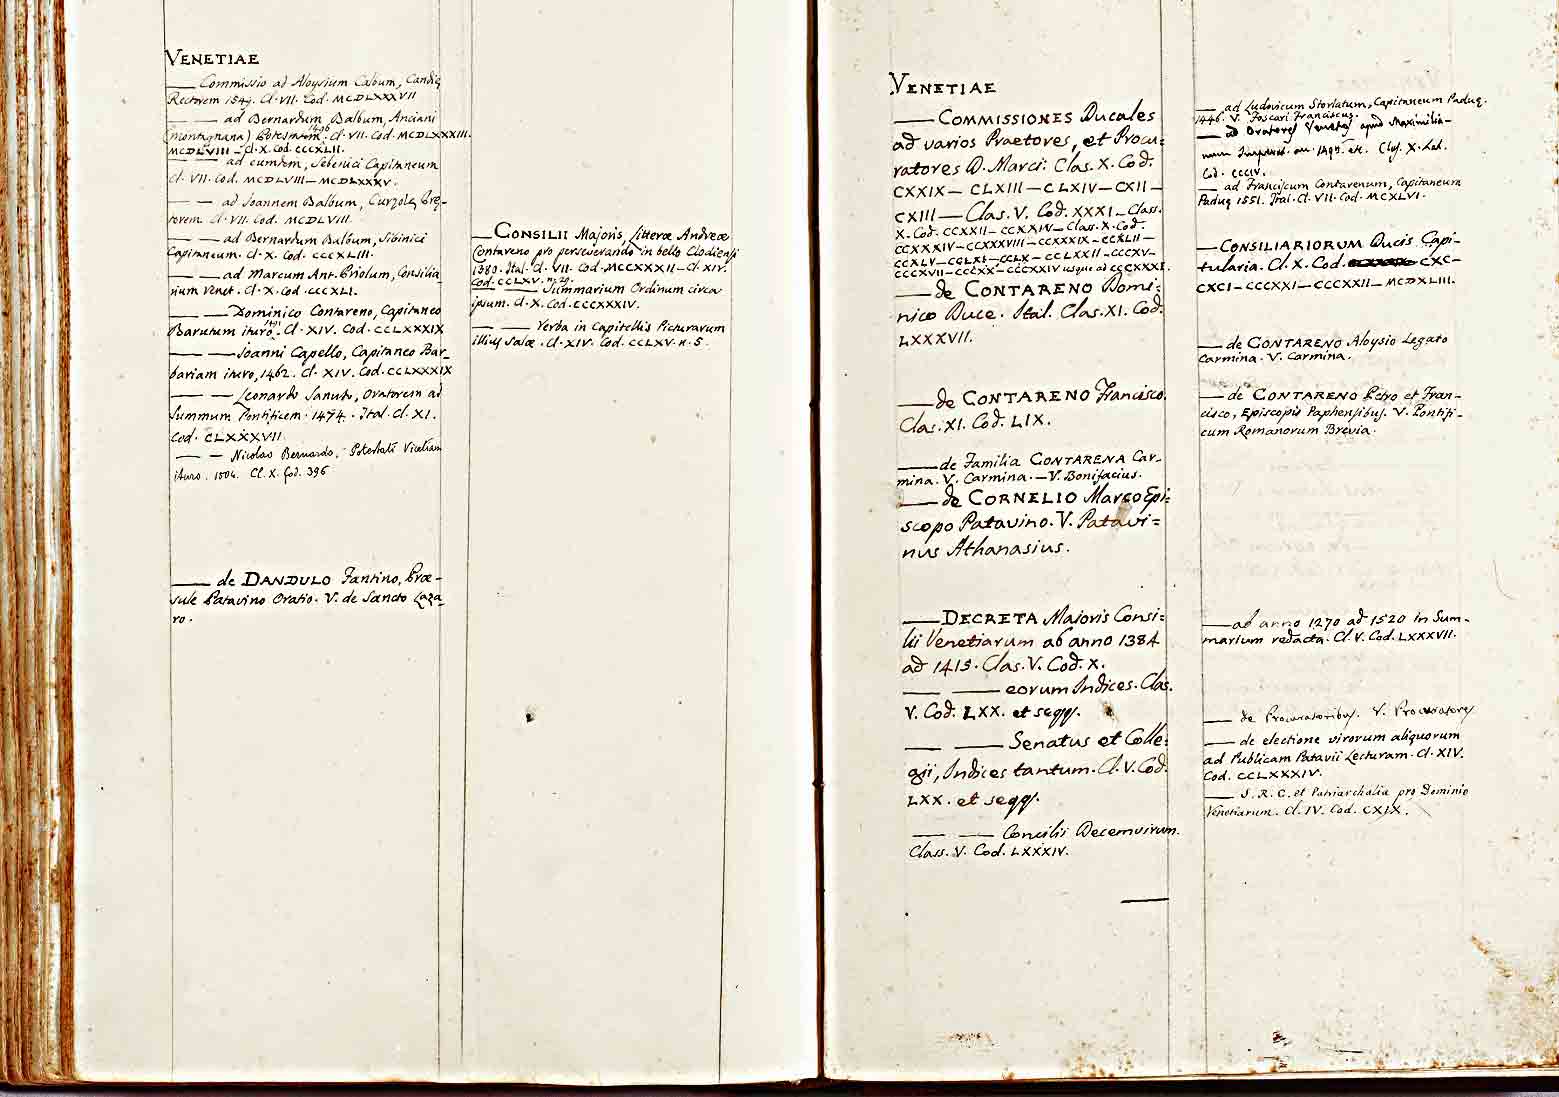 VENETIAE
— Commissio ad Aloysium Calbum, Candię
Rectorem 1549. Cl. VII. Cod. MCDLXXXVII
— ad Bernardum Balbum, Anciani
(Montagnana) Potestatem 1496. Cl. VII. Cod. MCDLXXXIII.
MCDLVIII — Cl. X. Cod. CCCXLII.
— — ad eumdem, Sebenici Capitaneum
Cl. VII. Cod. MCDLVIII — MCDLXXXV.
— — ad Joannem Balbum, Curzolę Pre-
torem. Cl. VII. Cod. MCDLVIII
— — ad Bernardum Balbum, Sibinici
Capitaneum. Cl. X. Cod. CCCXLIII.
— — ad Marcum Ant. Priolum, Consilia
rium Venet. Cl. X. Cod. CCCXLI.
— — Dominico Contareno, Capitaneo
Barutum ituro 1491. Cl. XIV. Cod. CCLXXXIX
— — Joanni Capello, Capitaneo Bar-
bariam ituro, 1462. Cl. XIV. Cod. CCLXXXIX
— — Leonardo Sanuto, Oratorem ad
Summum Pontificem. 1474. Ital. Cl. XI.
Cod. CLXXXVII.
— — Nicolao Bernardo, Potestati Vicetiam
ituro. 1504. Cl. X. Cod. 396
— de DANDULO Fantino, Præ-
sule Patavino Oratio. V. de Sancto Laza-
ro.
— CONSILII Majoris, Litteræ Andreæ
Contareno pro perseverando in bello Clodiensi
1380. Ital. Cl. VII. Cod. MCCXXXII — Cl. XIV.
Cod. CCLXV. n. 29.
— — Summarium Ordinum circa
ipsum. Cl. X. Cod. CCCXXXIV.
— — Verba in Capitellis Picturarum
illius Salæ. Cl. XIV. Cod. CCLXV. n. 5.
VENETIAE
— COMMISSIONES Ducales
ad varios Praetores, et Procu=
ratores D. Marci: Clas. X. Cod.
CXXIX — CLXIII — CLXIV — CXII —
CXIII — Clas. V. Cod. XXXI — Class.
X. Cod. CCXXII — CCXXIV — Class. X. Cod.
CCXXXIV — CCXXXVIII — CCXXXIX — CCXLII —
CCXLV — CCLXI — CCLX — CCLXXII — CCCXV —
CCCXVII — CCCXX — CCCXXIV usque ad CCCXXXI.
— de CONTARENO Domi=
nico Duce. Ital. Clas. XI. Cod.
LXXXVII.
— de CONTARENO Francisco.
Clas. XI. Cod. LIX.
— de Familia CONTARENA Car-
mina. V. Carmina. — V. Bonifacius.
— de CORNELIO Marco Epi=
scopo Patavino. V. Patavi=
nus Athanasius.
— DECRETA Majoris Consi=
lii Venetiarum ab anno 1384
ad 1415. Clas. V. Cod. X.
— — eorum Indices. Clas.
V. Cod. LXX. et seqq.
— — Senatus et Colle=
gii, Indices tantum. Cl. V. Cod.
LXX. et seqq.
— — Concilii Decemvirum.
Class. V. Cod. LXXXIV.
— ad Ludovicum Storlatum, Capitaneum Paduę.
1446. V. Foscari Franciscus.
— ad Oratores Venetos apud Maximilia-
num Imperat. an. 1495. etc. Clas. X. Lat.
Cod. CCCIV.
— ad Franciscum Contarenum, Capitaneum
Paduę 1551. Ital. Cl. VII. Cod. MCXLVI.
— CONSILIARIORUM Ducis Capi-
tularia. Cl. X. Cod. CXC —
CXCI — CCCXXI — CCCXXII — MCDXLIII.
— de CONTARENO Aloysio Legato
Carmina. V. Carmina.
— de CONTARENO Petro et Fran-
cisco, Episcopis Paphensibus. V. Pontifi-
cum Romanorum Brevia.
— ab anno 1270 ad 1520 in Sum-
marium redacta. Cl. V. Cod. LXXXVII.
— de Procuratoribus. V. Procuratores
— de electione virorum aliquorum
ad Publicam Patavii Lecturam. Cl. XIV.
Cod. CCLXXXIV.
— S. R. C. et Patriarchalia pro Dominio
Venetiarum. Cl. IV. Cod. CXIX.